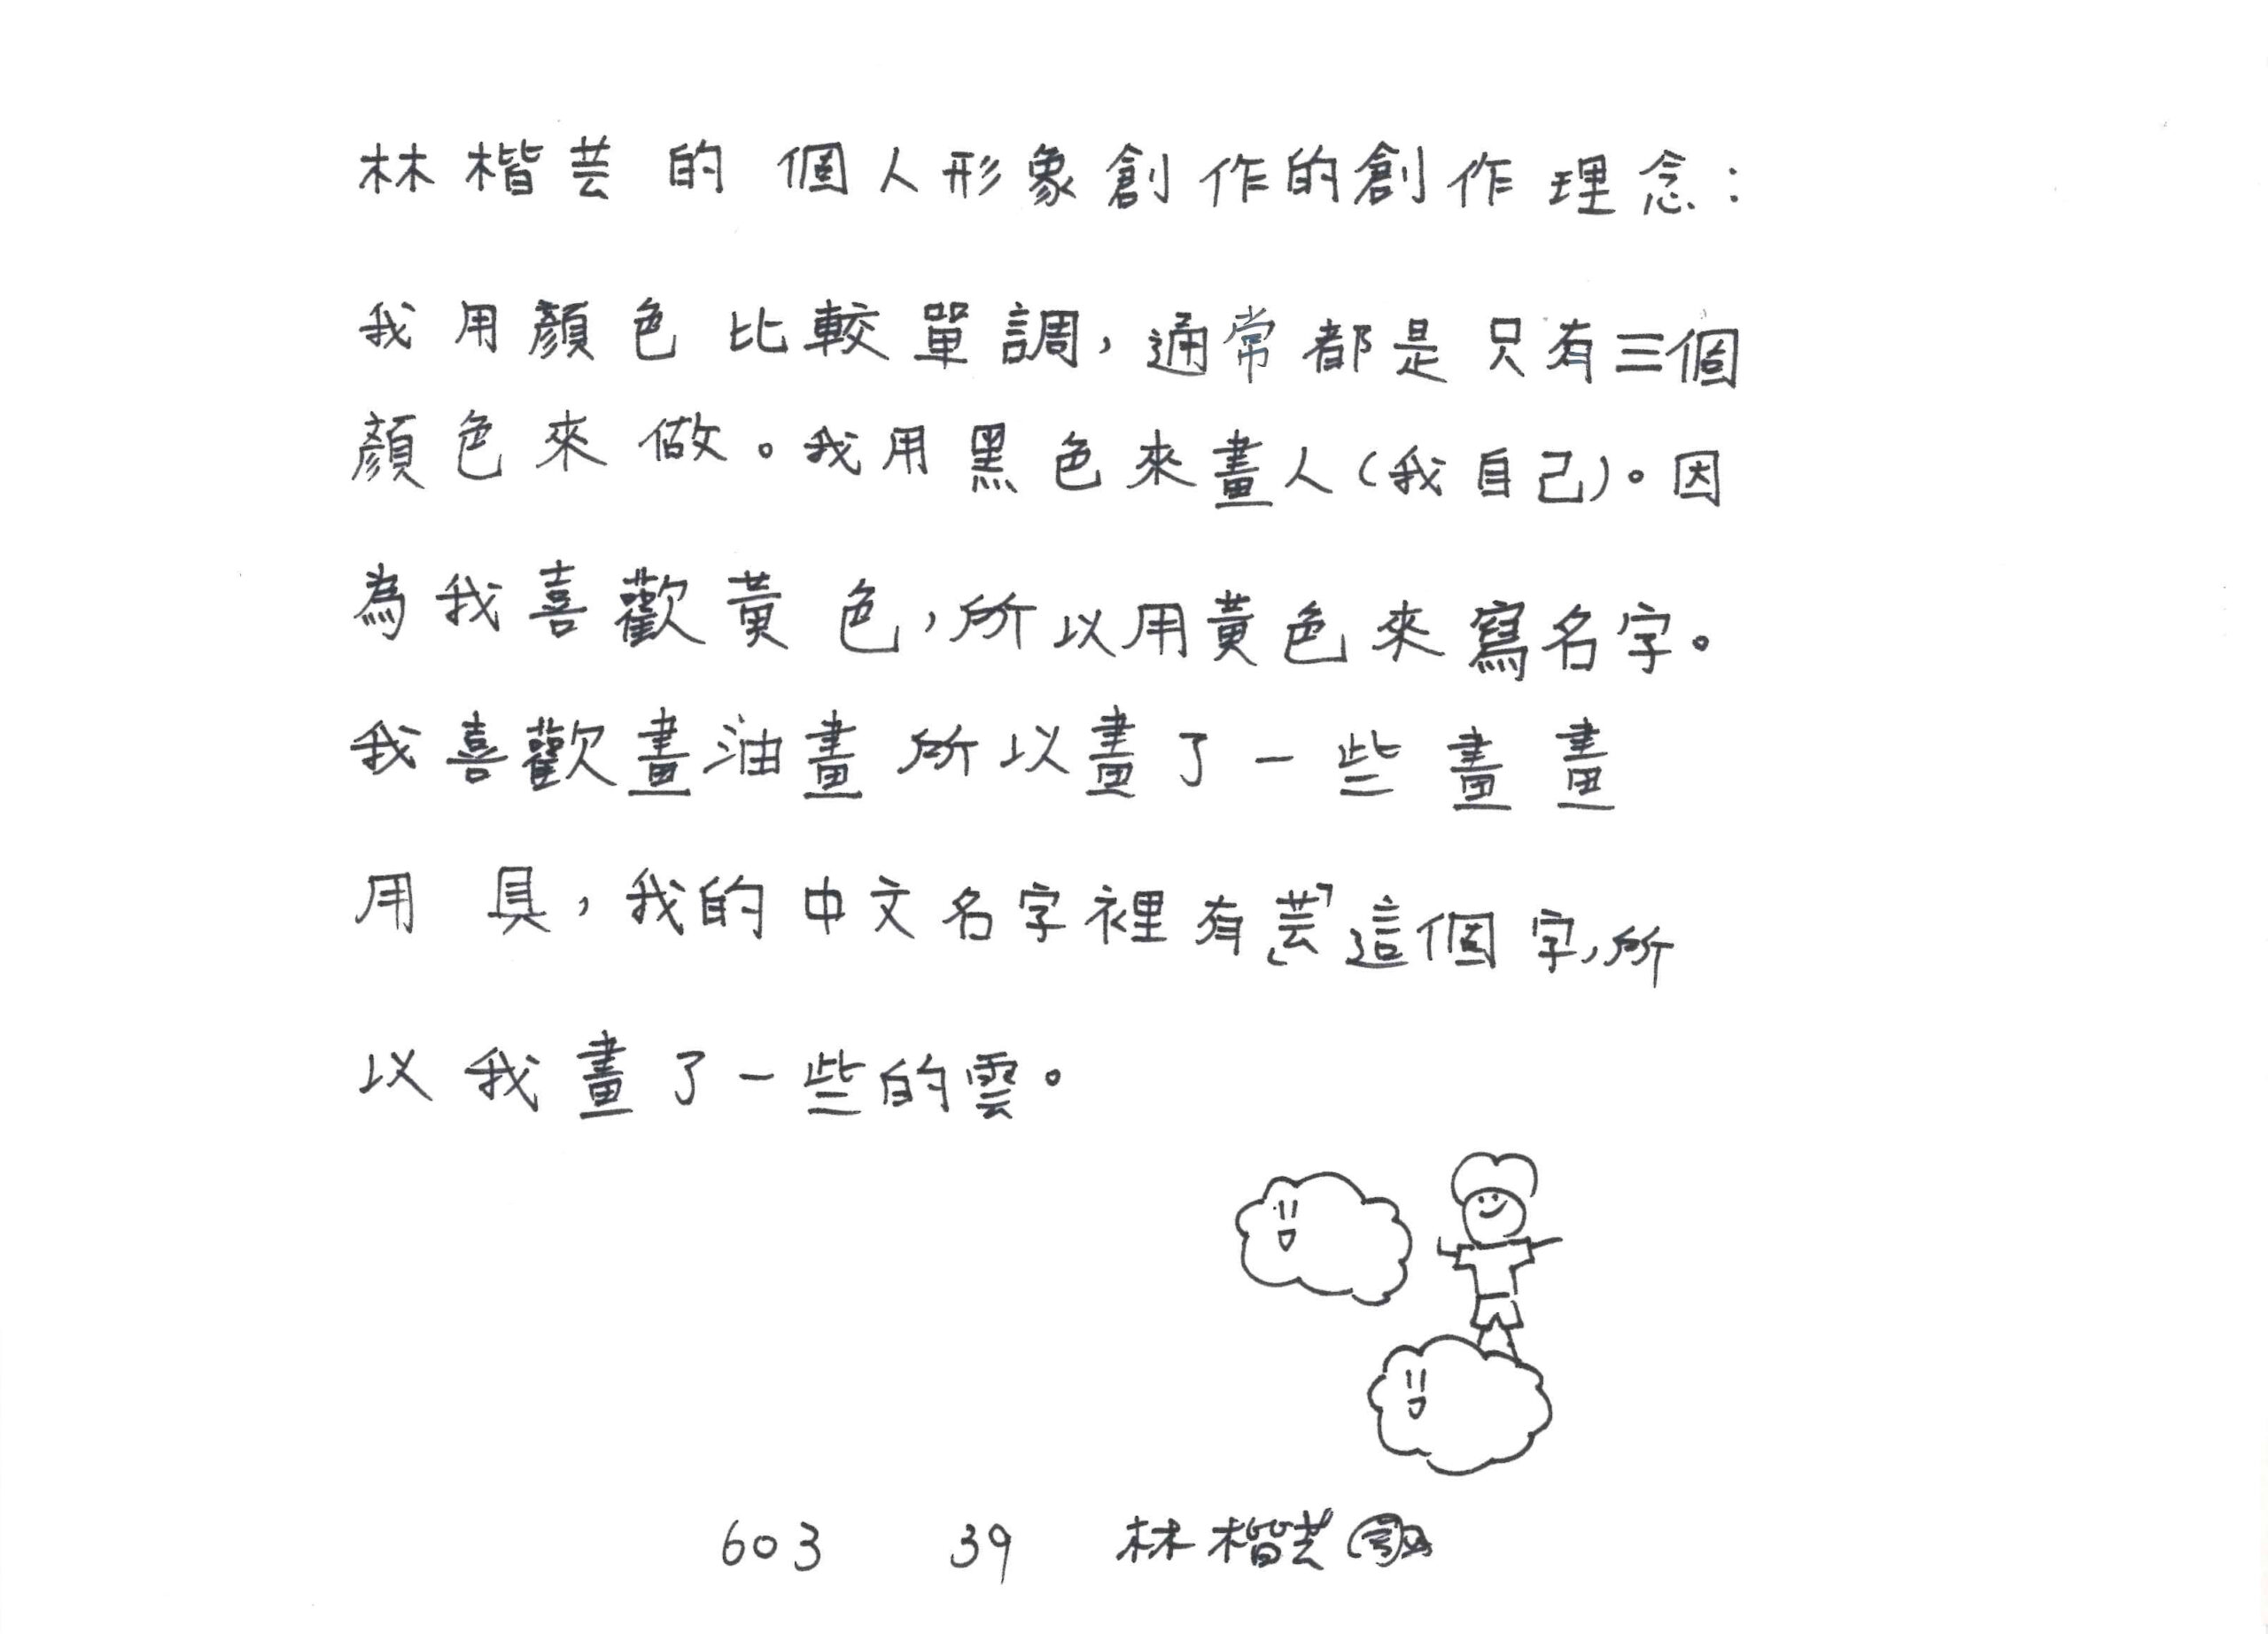 林楷芸的個人形象創作的創作理念：
我用顏色比較單調，通常都是只有三個
顏色來做。我用黑色來畫人（我自己）。因
為我喜歡黃色，所以用黃色來寫名字。
我喜歡畫油畫所以畫了一些畫畫
用具，我的中文名字裡有「芸」這個字，所
以我畫了一些的雲。
603 39 林楷芸